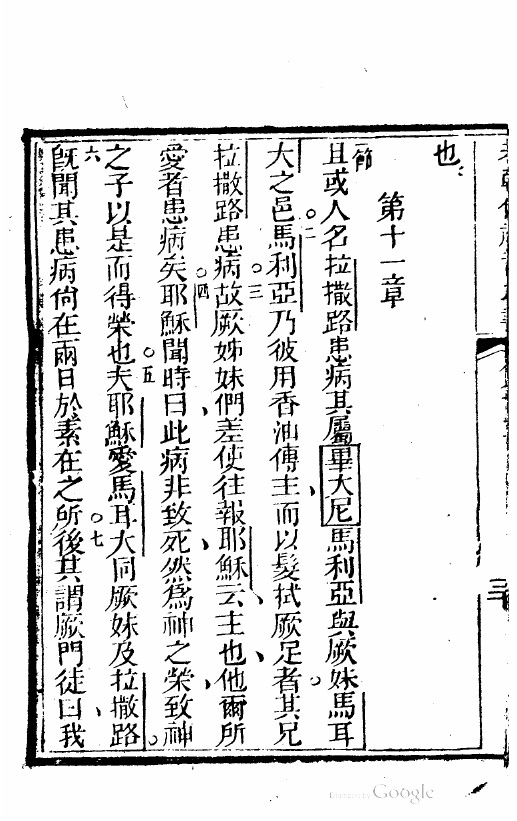 也
第十一章
一節 且或人名拉撒路患病其屬畢大尼馬利亞與厥妹馬耳
大之邑二馬利亞乃彼用香油傅主而以髮拭厥足者其兄
拉撒路患病三故厥姊妹們差使往報耶穌云主也他爾所
愛者患病矣四耶穌聞時曰此病非致死然為神之榮致神
之子以是而得榮也五夫耶穌愛馬耳大同厥妹及拉撒路
六既聞其患病尙在兩日於素在之所七後其謂厥門徒曰我
Google